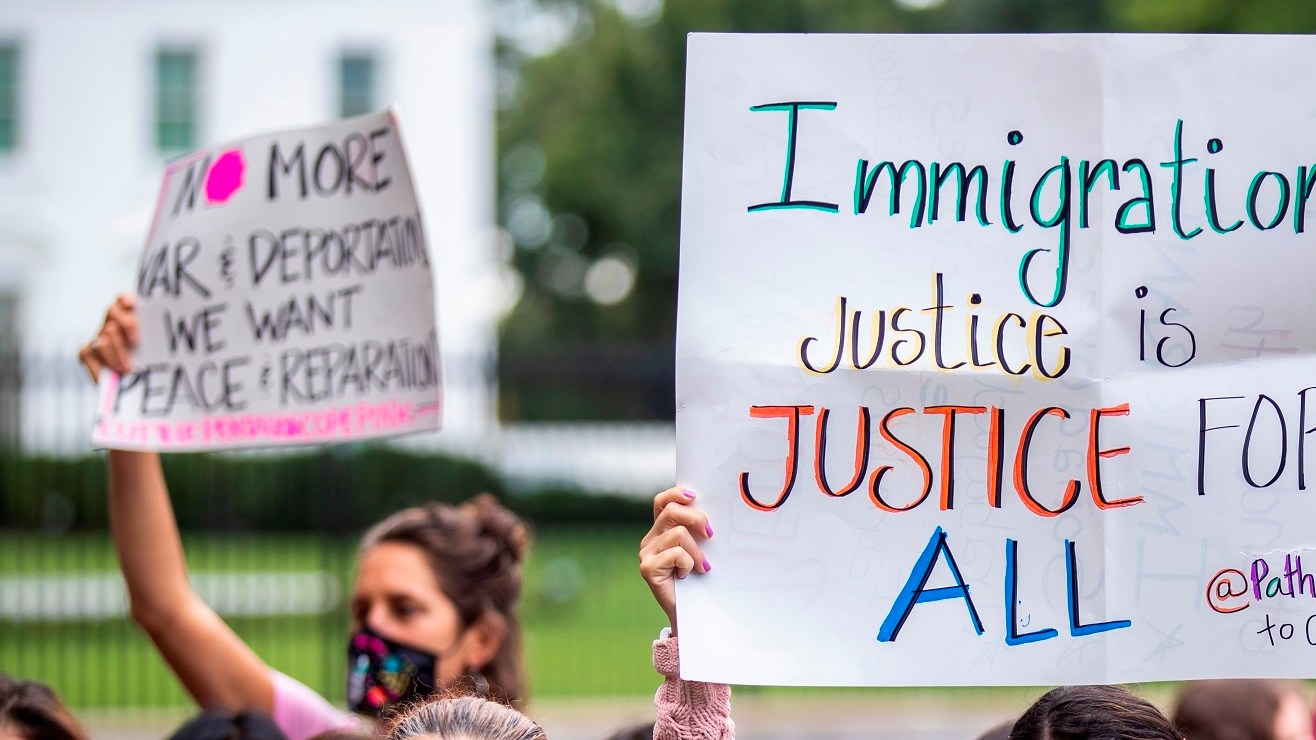 NO MORE
WAR & DEPORTATION
WE WANT
PEACE & REPARATION
Immigration
Justice is
JUSTICE FOR
ALL
@Path
to C